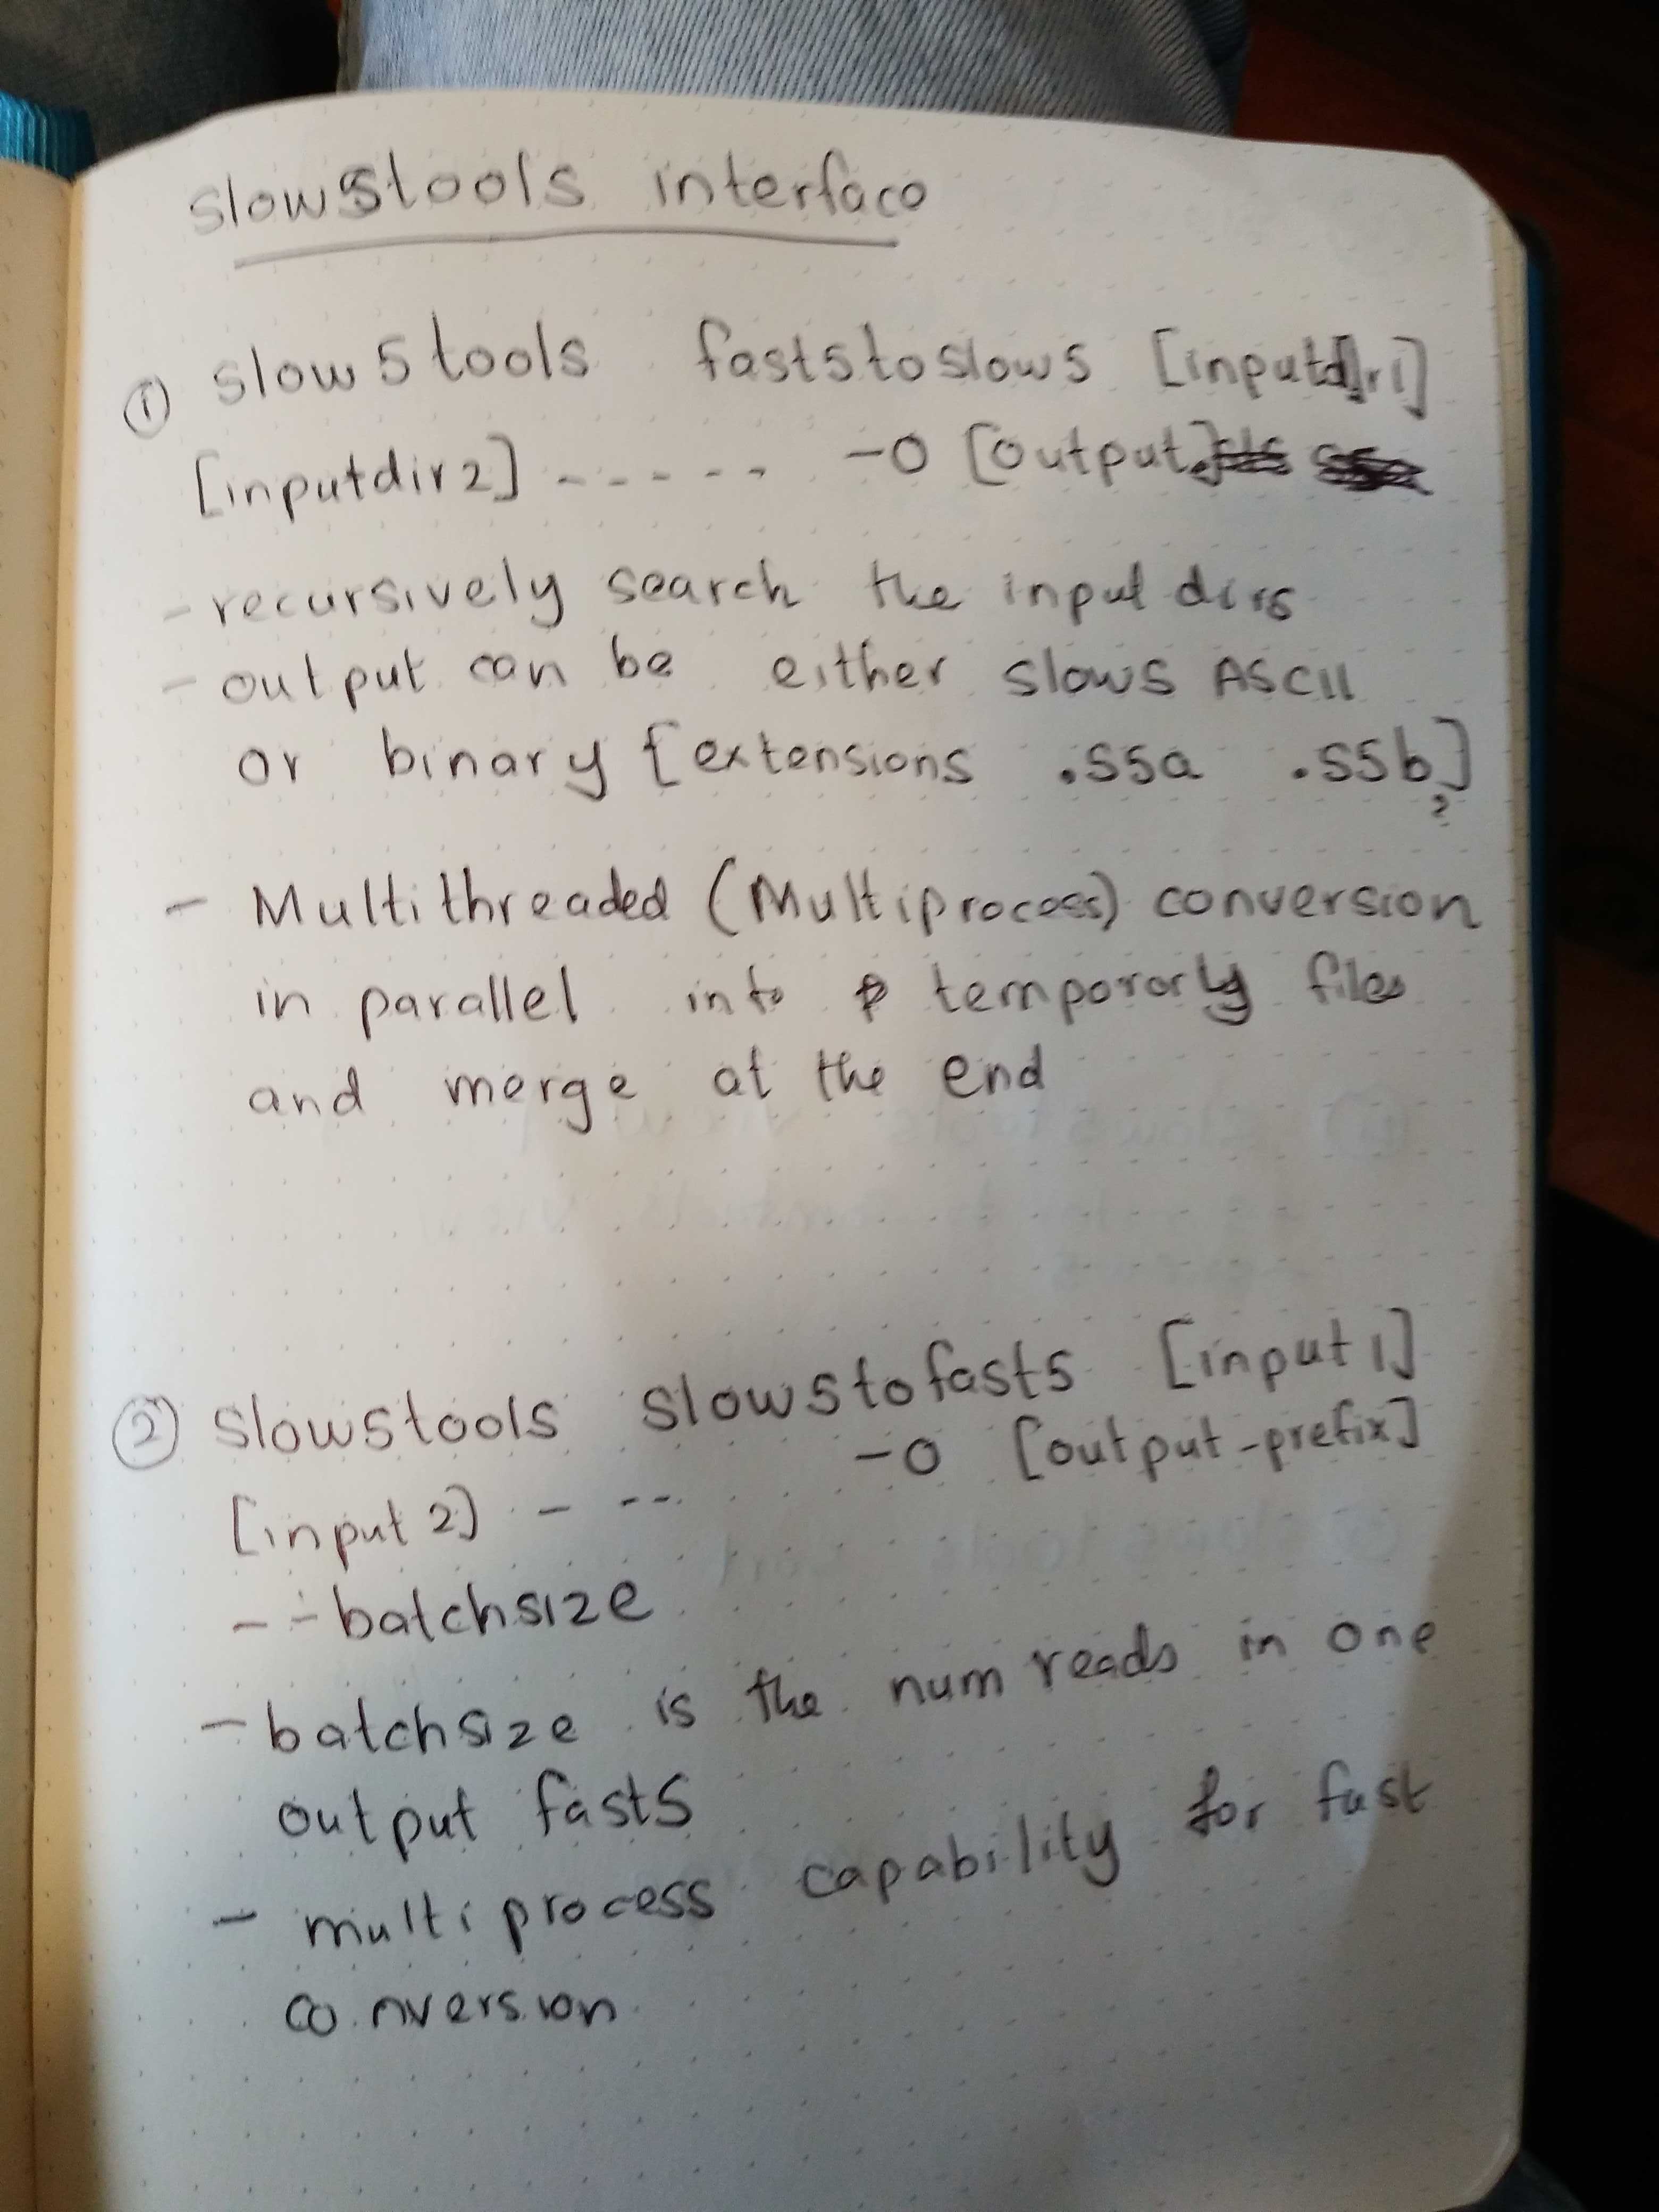 slow5tools interface
① slow5tools fast5toslow5 [inputdir1]
[inputdir2] - - - - - -o [output]
- recursively search the input dirs
- output can be either slow5 ASCII
or binary [extensions .s5a .s5b]
?
- Multithreaded (Multiprocess) conversion
in parallel into tempororly files
and merge at the end
② slow5tools slow5tofast5 [input1]
[input2] - - - -o [output-prefix]
--batchsize
- batchsize is the num reads in one
output fast5
- multiprocess capability for fast
conversion